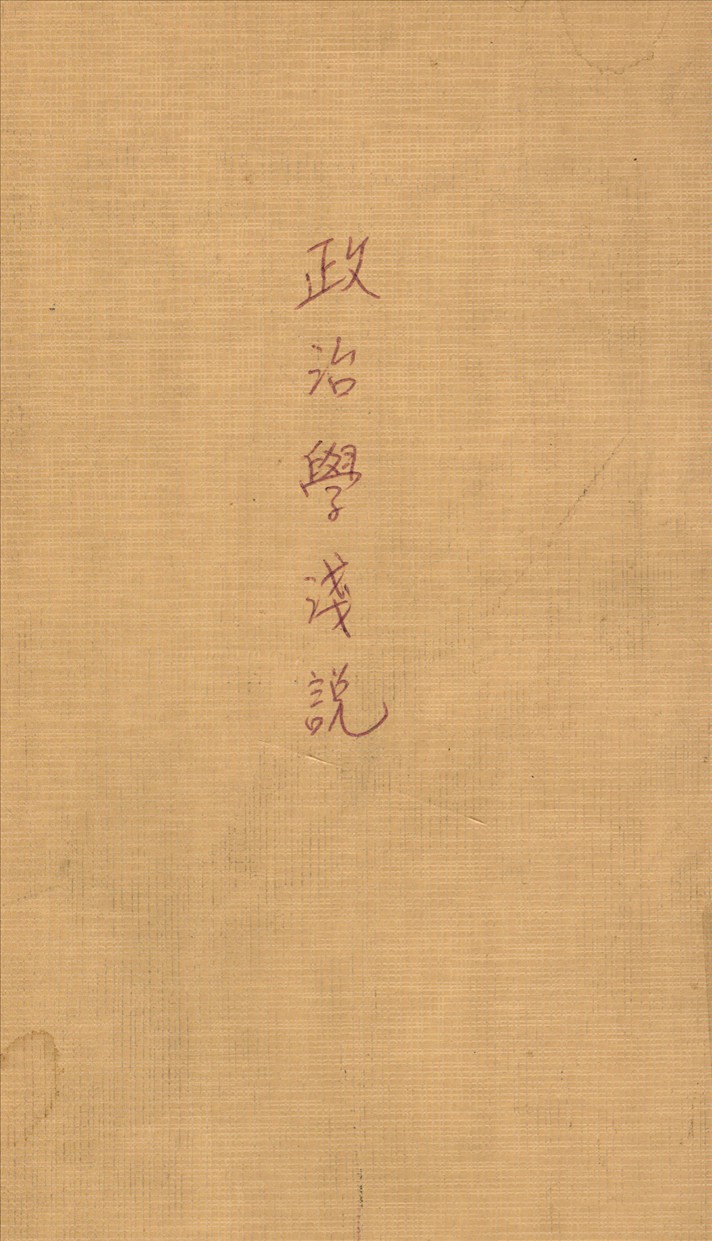 政治學淺説